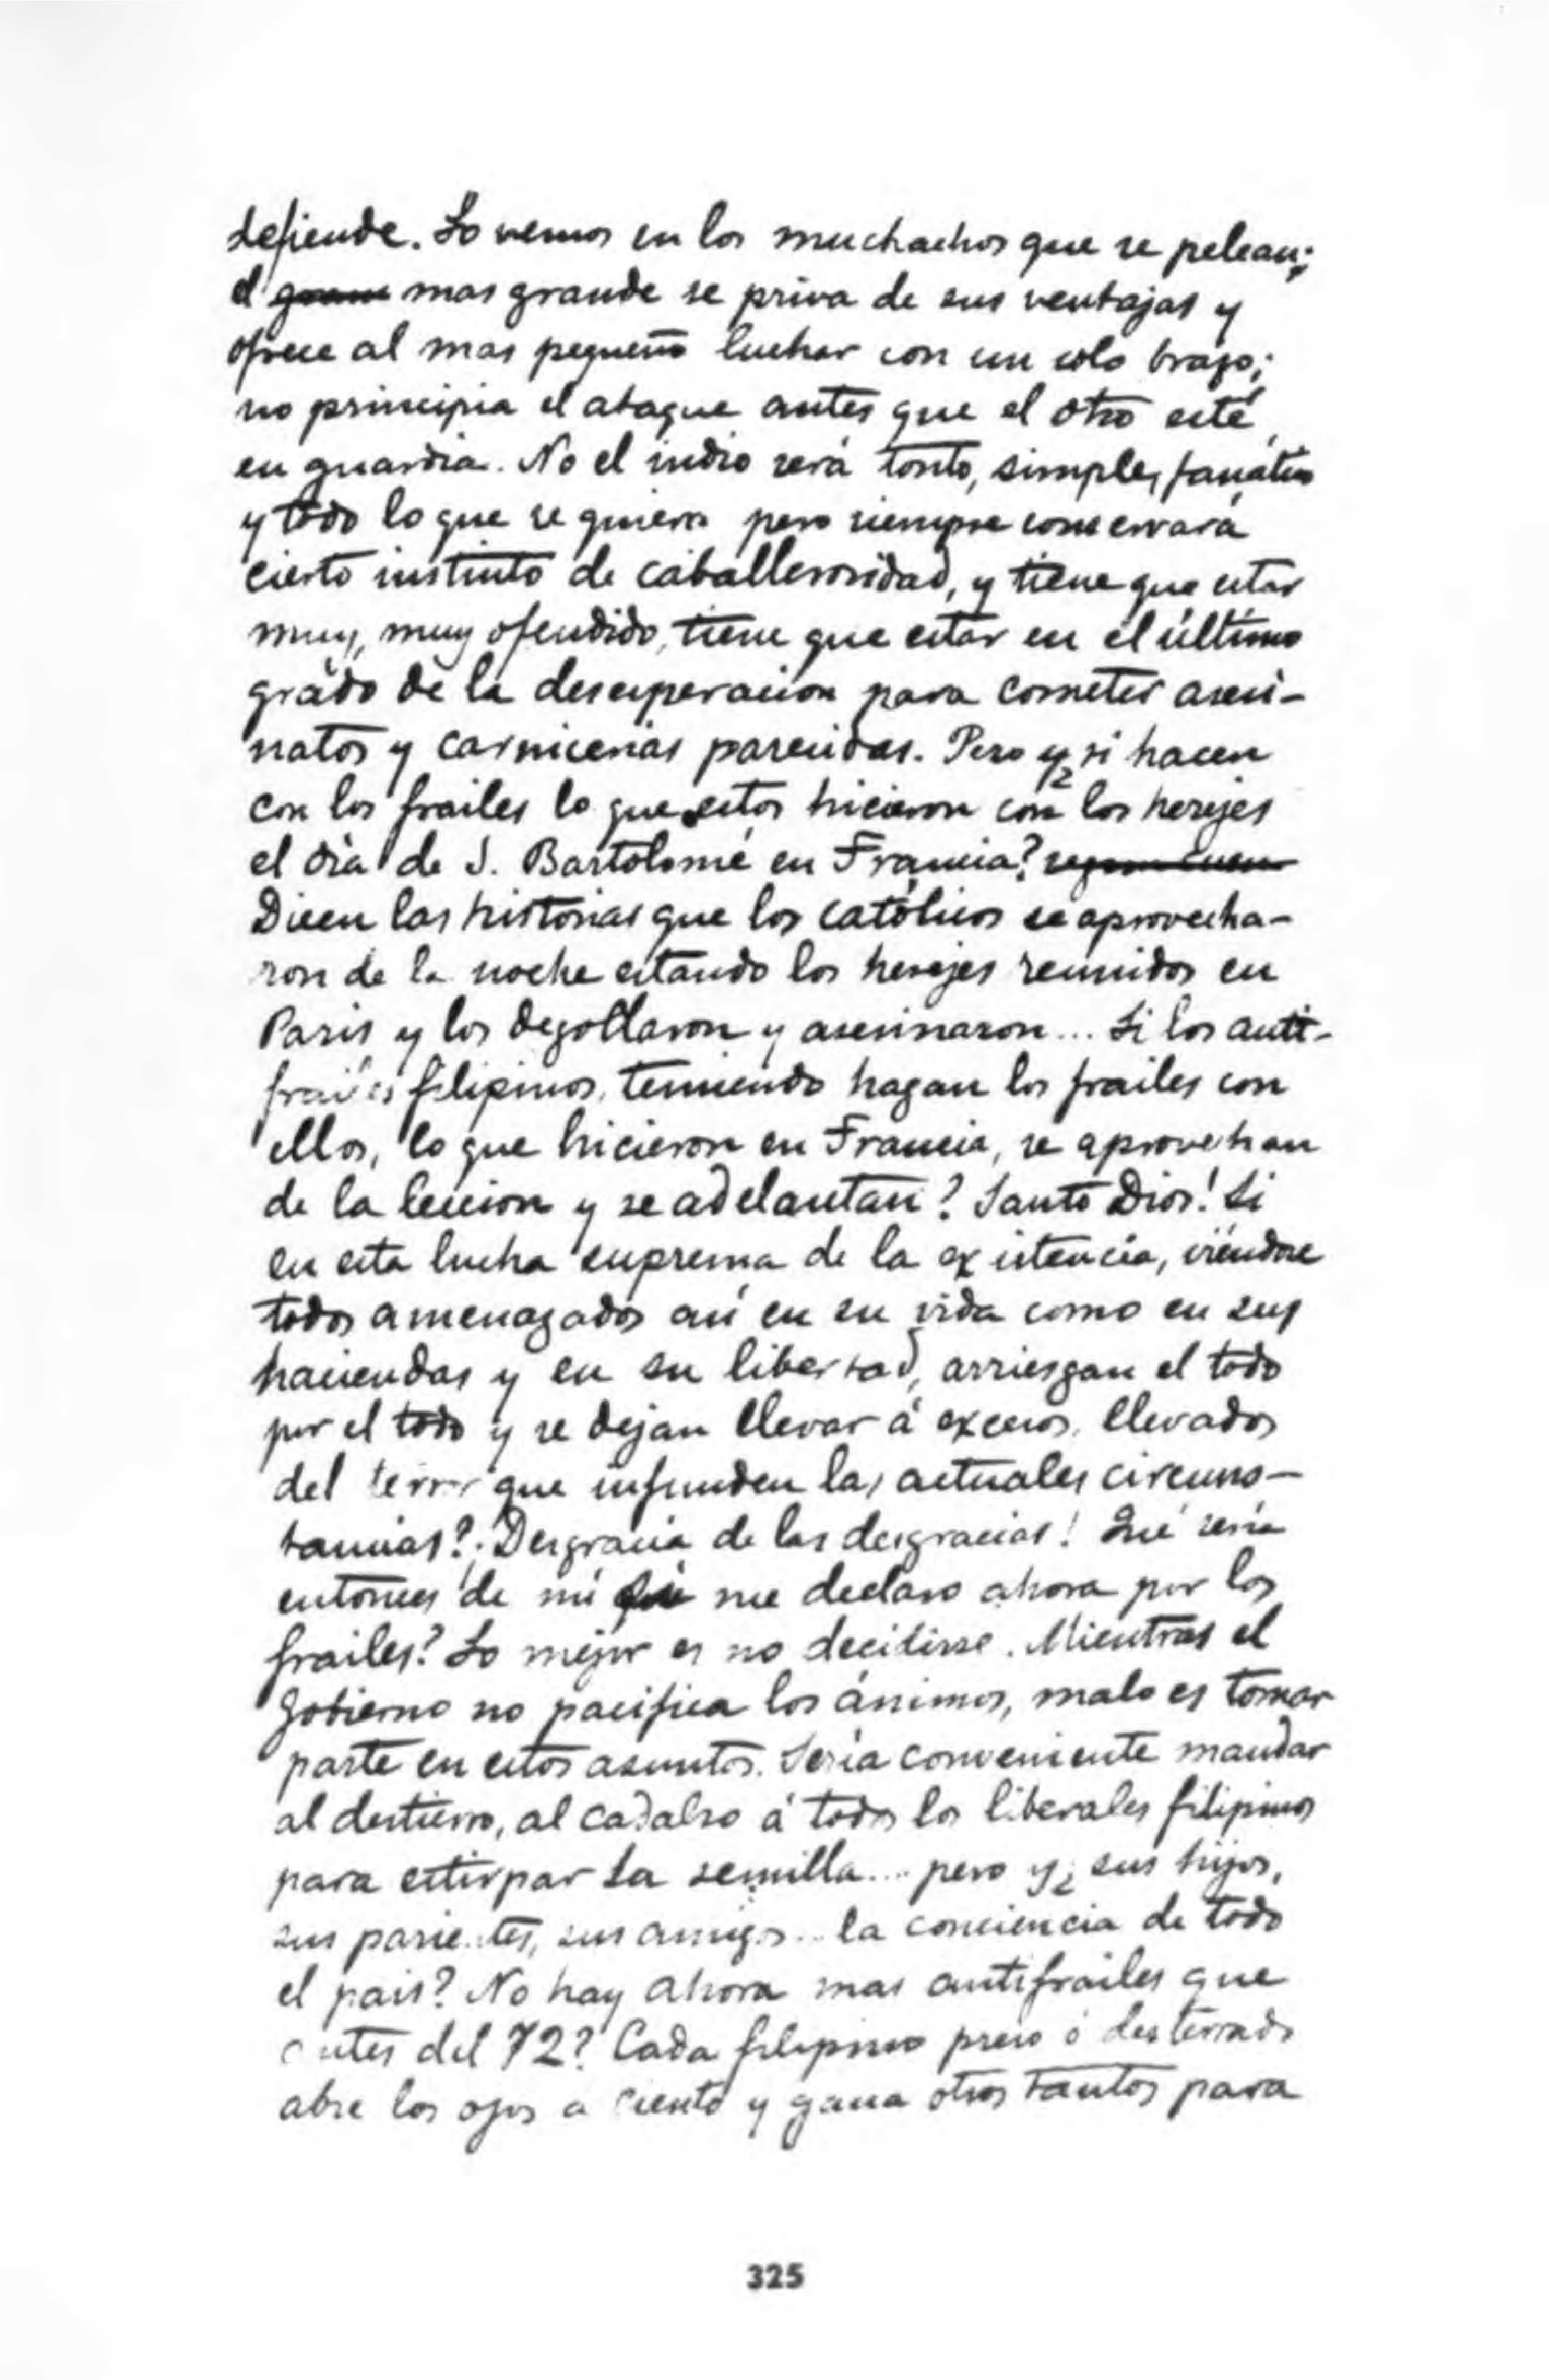 defiende. Lo vemos en los muchachos que se pelean;
el mas grande se priva de sus ventajas y
ofrece al mas pequeño luchar con un solo brazo;
no principia el ataque antes que el otro esté
en guardia. No el indio será tonto, simple, fanático
y todo lo que se quiera pero siempre conservará
cierto instinto de caballerosidad, y tiene que estar
muy, muy ofendido, tiene que estar en el último
grado de la desesperacion para cometer asesi-
natos y carnicerias parecidas. Pero y ¿si hacen
con los frailes lo que estos hicieron con los herejes
el dia de S. Bartolomé en Francia?
Dicen las historias que los católicos se aprovecha-
ron de la noche estando los herejes reunidos en
Paris y los degollaron y asesinaron... Si los anti-
frailes filipinos, temiendo hagan los frailes con
ellos, lo que hicieron en Francia, se aprovechan
de la leccion y se adelantan? Santo Dios! Si
en esta lucha suprema de la existencia, viéndose
todos amenazados asi en su vida como en sus
haciendas y en su libertad, arriesgan el todo
por el todo y se dejan llevar á excesos, llevados
del terror que infunden las actuales circuns-
tancias? ¡Desgracia de las desgracias! Qué seria
entonces de mí si me declaro ahora por los
frailes? Lo mejor es no decidirse. Mientras el
Gobierno no pacifica los ánimos, malo es tomar
parte en estos asuntos. Seria conveniente mandar
al destierro, al cadalso á todos los liberales filipinos
para estirpar la semilla... pero y ¿sus hijos,
sus parientes, sus amigos... la conciencia de todo
el pais? No hay ahora mas antifrailes que
antes del 72? Cada filipino preso ó desterrado
abre los ojos a ciento y gana otros tantos para
325